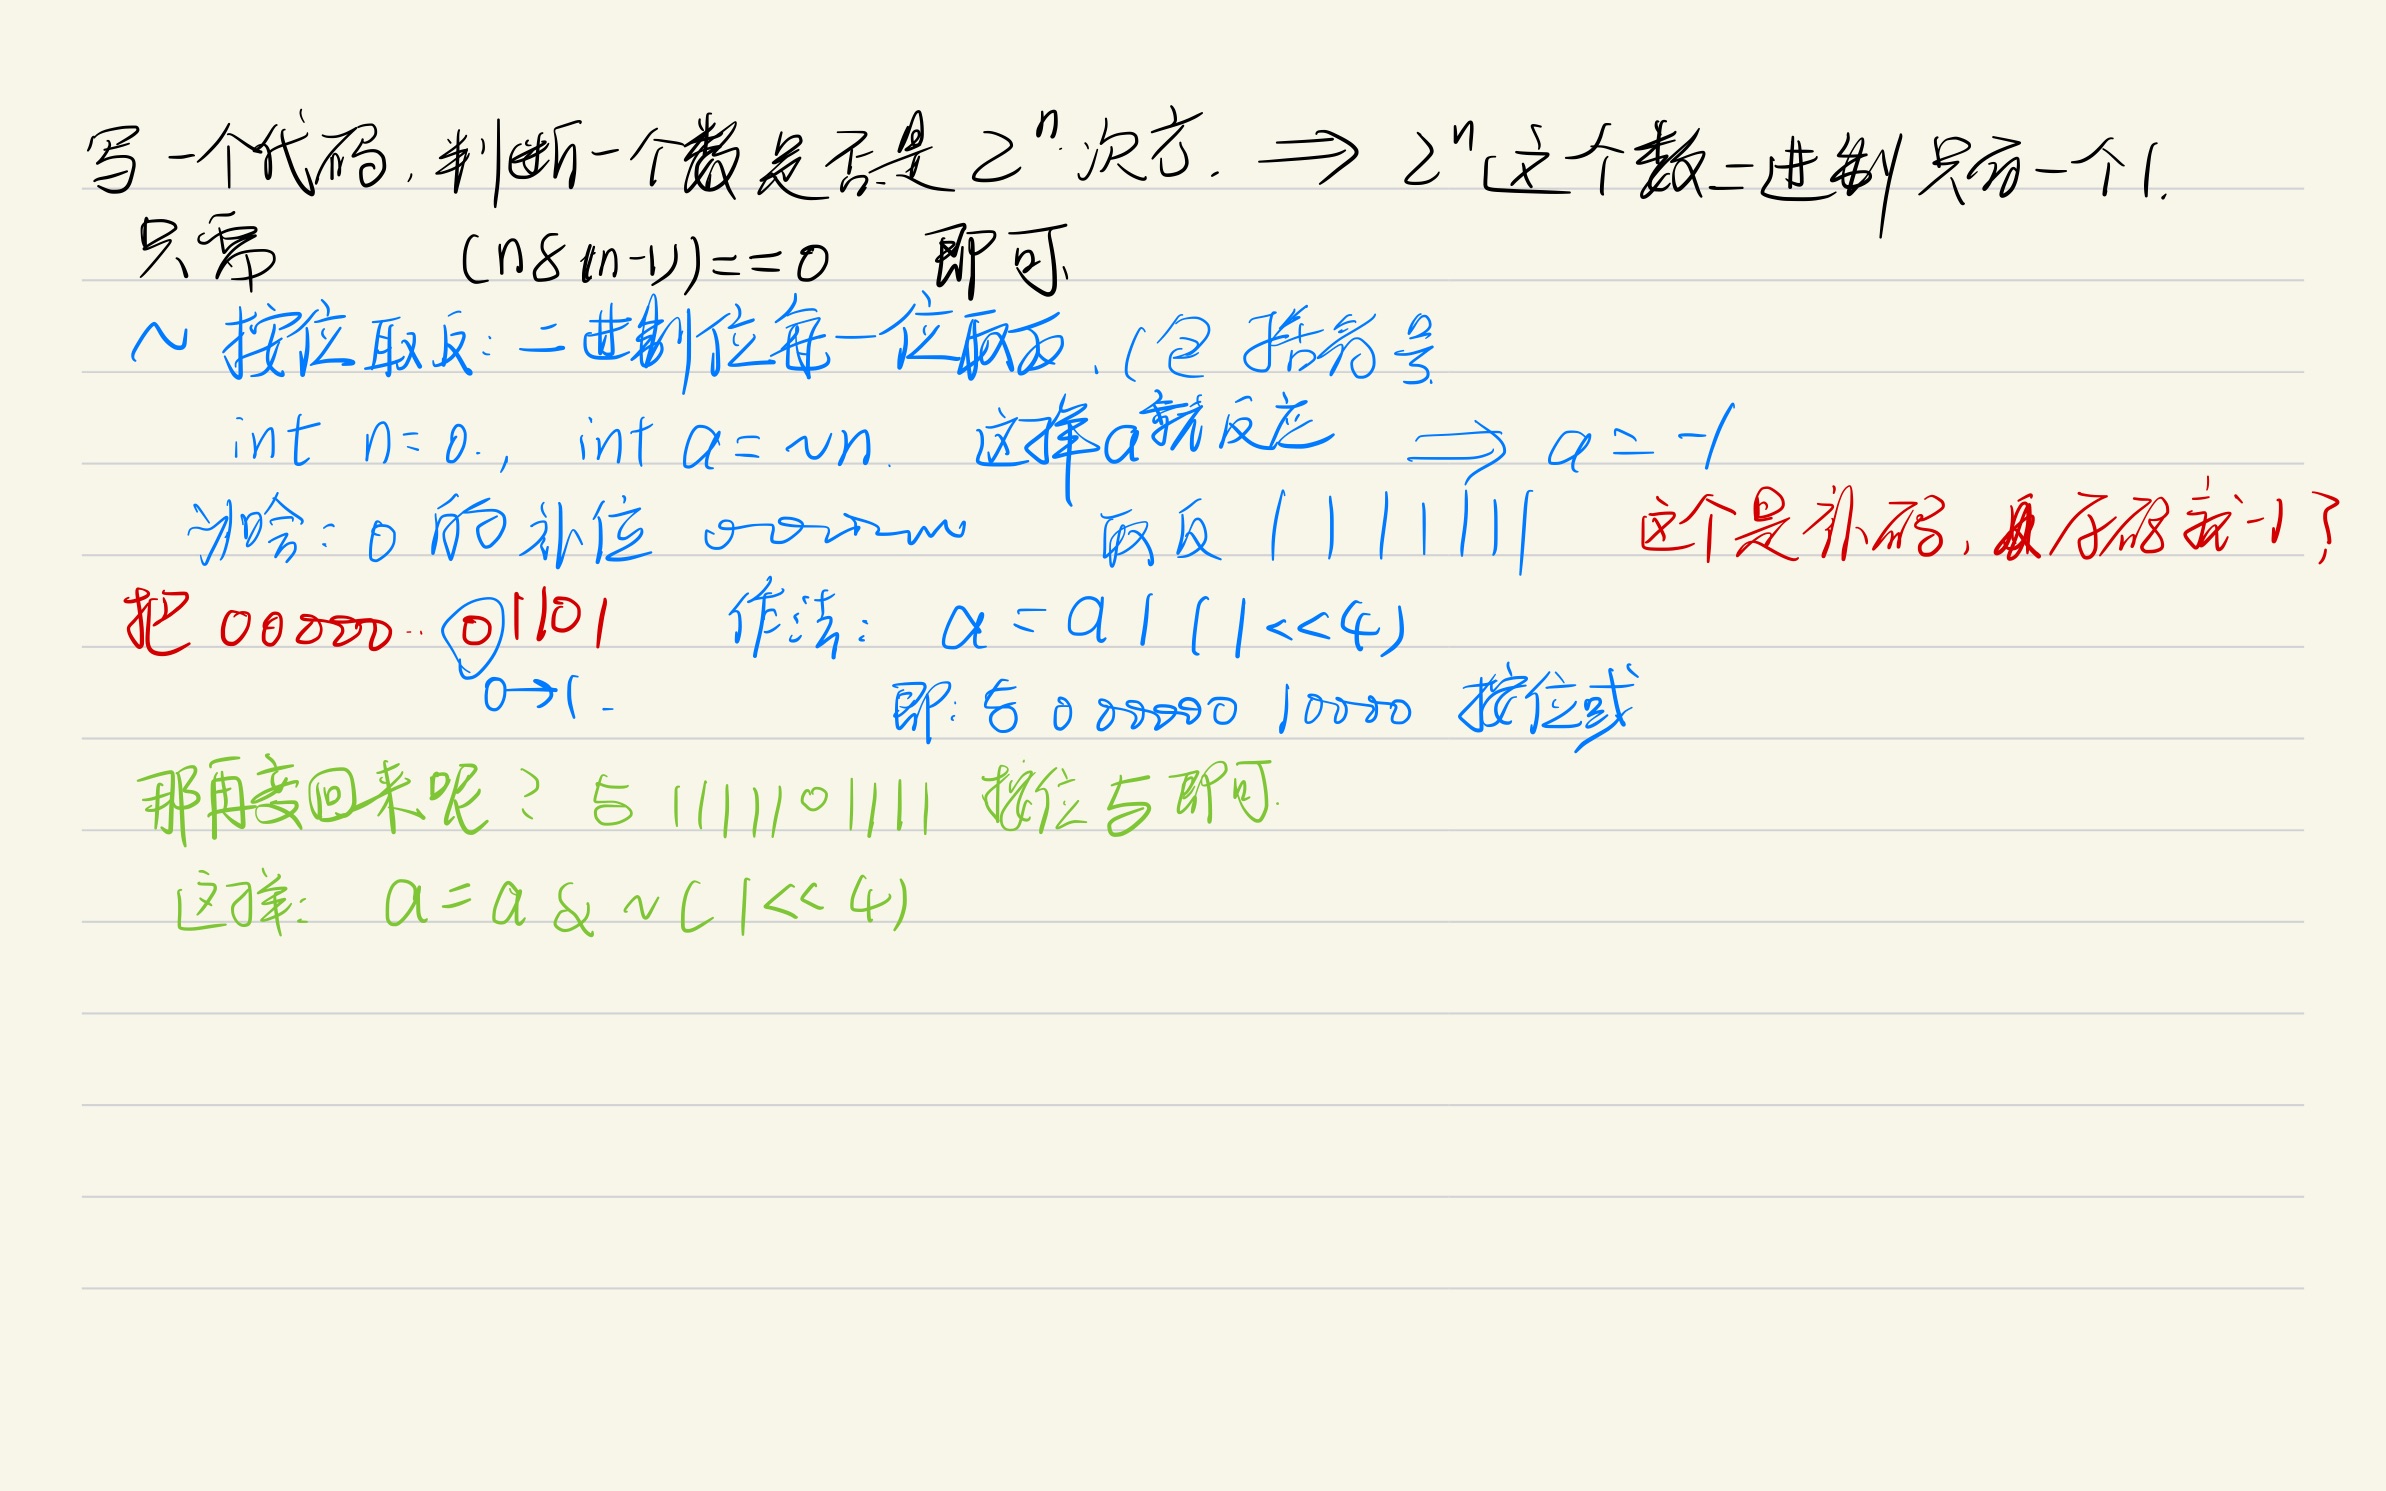 写一个代码,判断一个数是不是2ⁿ次方. ⇒ 2ⁿ这个数二进制只有一个1.
只需 (n&(n-1))==0 即可
~ 按位取反:二进制位每一位取反.(包括符号
int n=0., int a=~n. 这样a就反应 ⇒ a=-1
0的补位 000 取反 1111111 这个是补码,原码就-1?
把 00000.. 01101 作法: a=a|(1<<4)
0→1. 即:与00000010000 按位或
那再变回来呢?与1111101111 按位与即可.
这样: a=a&~(1<<4)